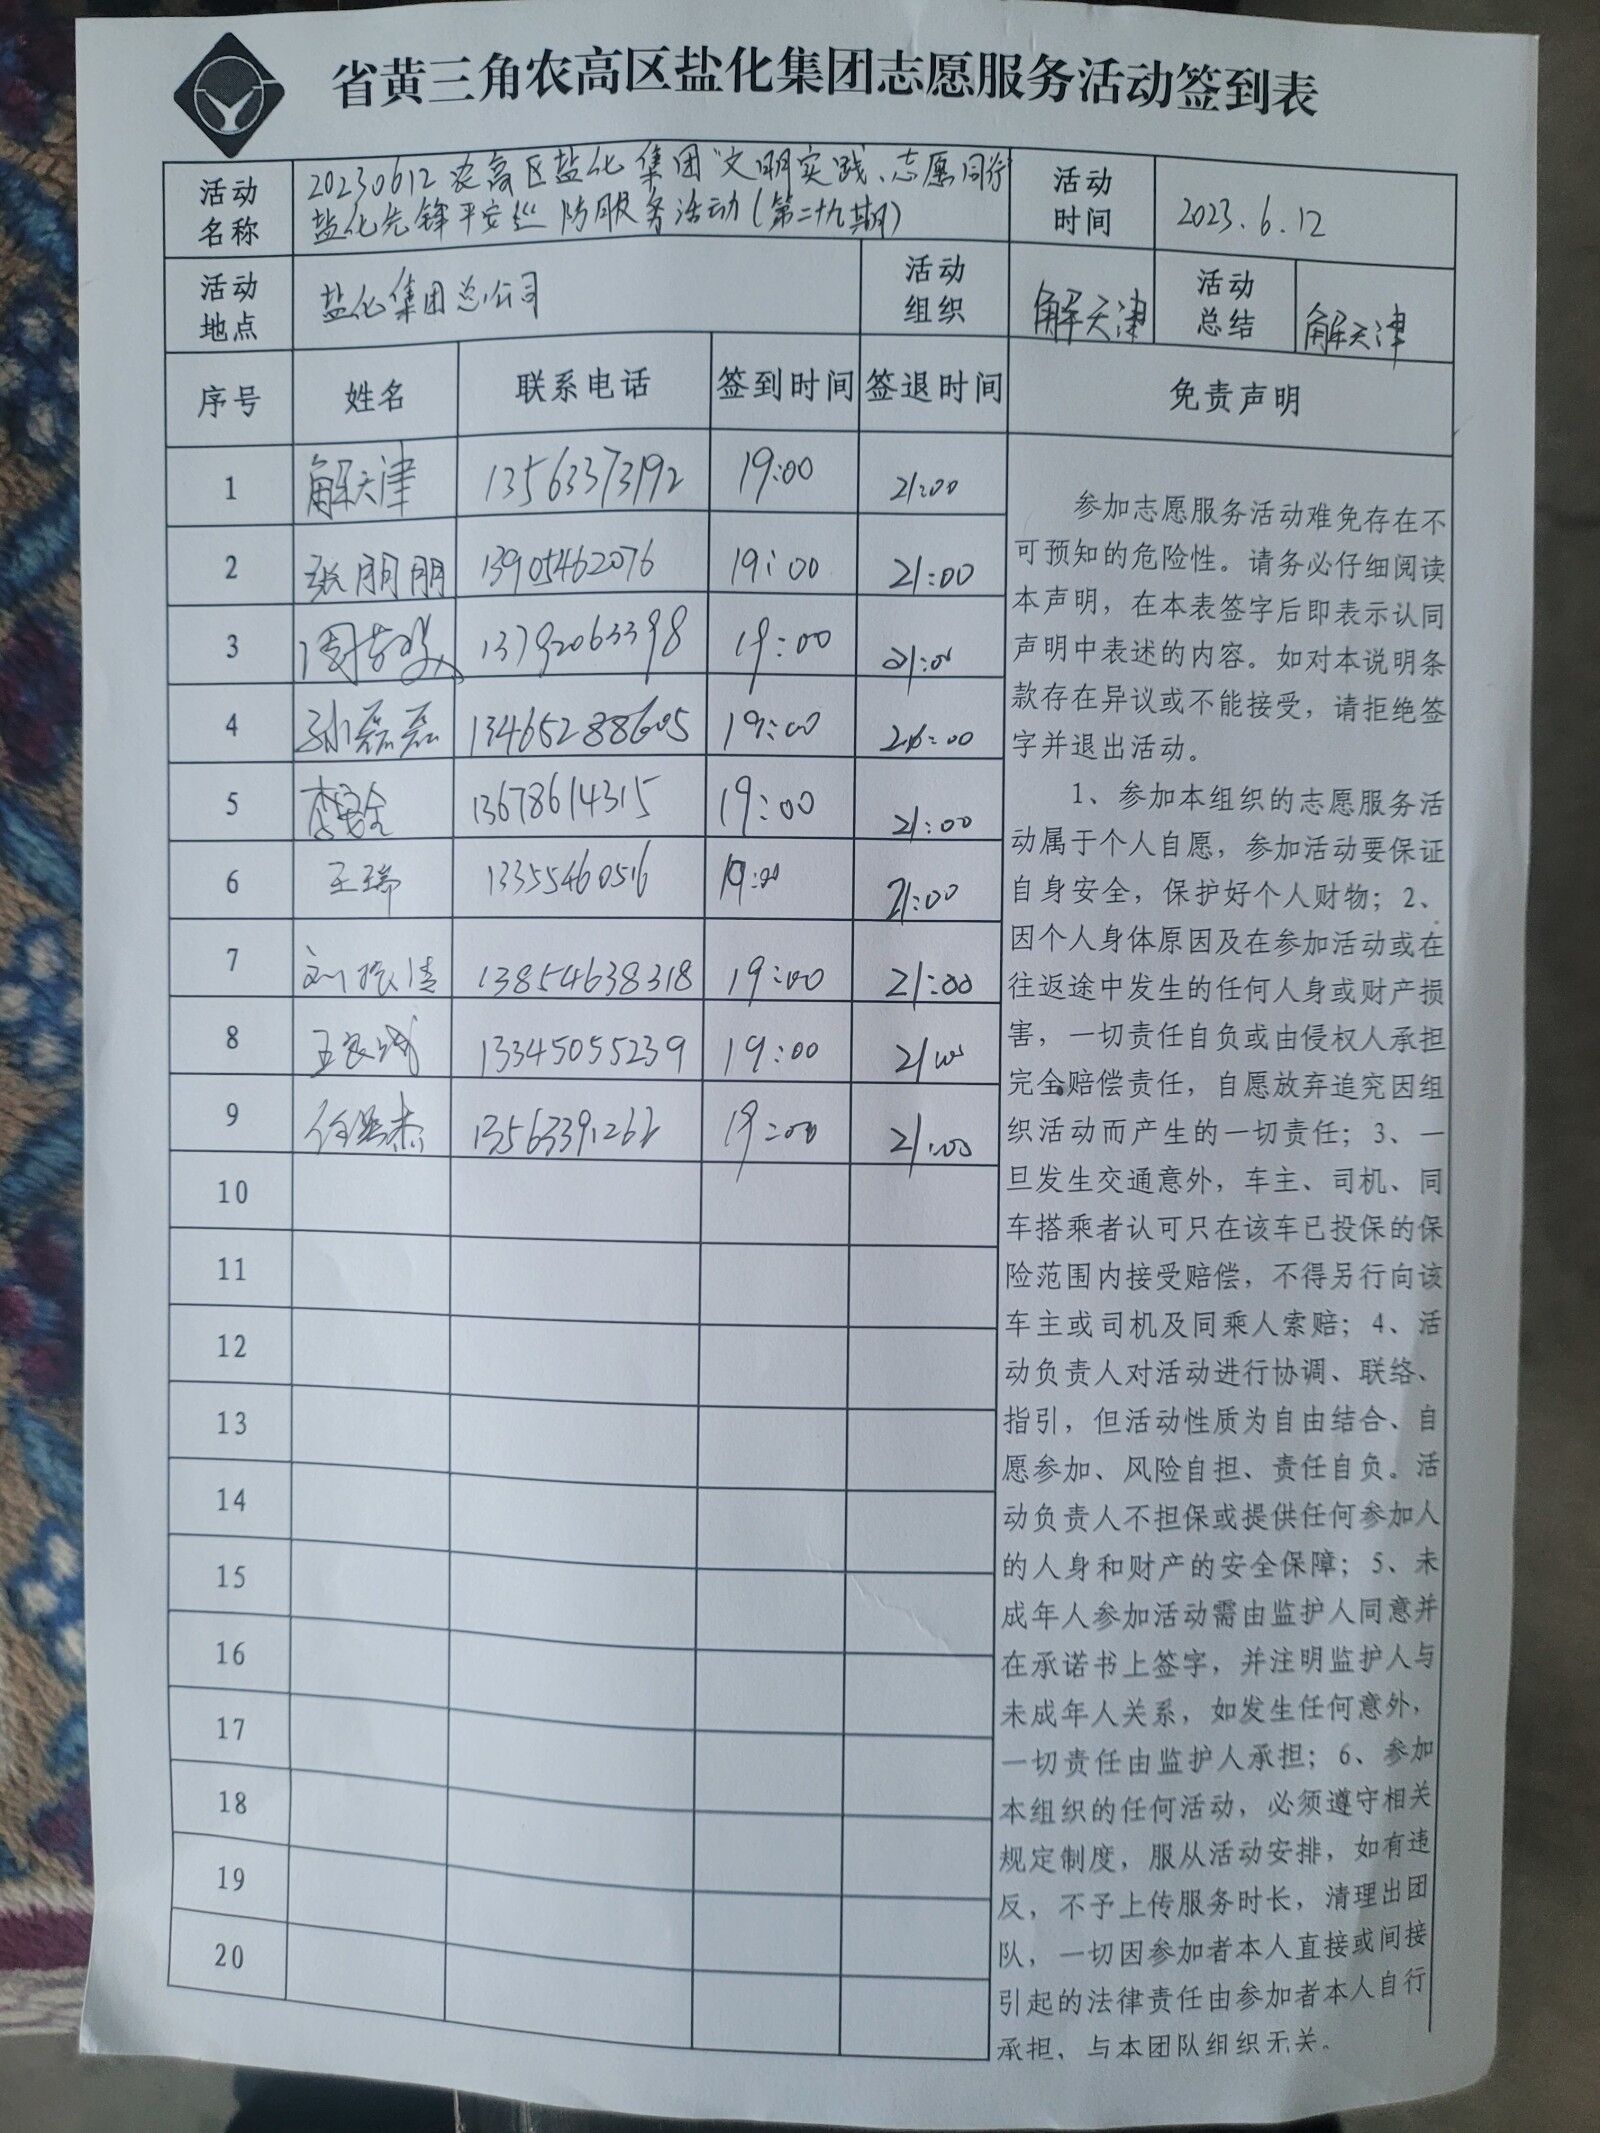 省黄三角农高区盐化集团志愿服务活动签到表
活动名称
20230612 农高区盐化集团"文明实践、志愿同行
盐化先锋平安巡防服务活动(第二十九期)
活动时间
2023.6.12
活动地点
盐化集团总公司
活动组织
解天津
活动总结
解天津
序号 姓名 联系电话 签到时间 签退时间 免责声明
1 解天津 13563373192 19:00 21:00
2 张朋朋 13905462076 19:00 21:00
3 13792063398 19:00 21:00
4 孙磊磊 13465288605 19:00 :00
5 李安全 13678614315 19:00 21:00
6 王瑞 13355460516 19:00 21:00
7 刘振清 13854638318 19:00 21:00
8 王良城 13345055239 19:00 2100
9 19:00 21:00
10
11
12
13
14
15
16
17
18
19
20
参加志愿服务活动难免存在不
可预知的危险性。请务必仔细阅读
本声明，在本表签字后即表示认同
声明中表述的内容。如对本说明条
款存在异议或不能接受，请拒绝签
字并退出活动。
1、参加本组织的志愿服务活
动属于个人自愿，参加活动要保证
自身安全，保护好个人财物；2、
因个人身体原因及在参加活动或在
往返途中发生的任何人身或财产损
害，一切责任自负或由侵权人承担
完全赔偿责任，自愿放弃追究因组
织活动而产生的一切责任；3、一
旦发生交通意外，车主、司机、同
车搭乘者认可只在该车已投保的保
险范围内接受赔偿，不得另行向该
车主或司机及同乘人索赔；4、活
动负责人对活动进行协调、联络、
指引，但活动性质为自由结合、自
愿参加、风险自担、责任自负。活
动负责人不担保或提供任何参加人
的人身和财产的安全保障；5、未
成年人参加活动需由监护人同意并
在承诺书上签字，并注明监护人与
未成年人关系，如发生任何意外，
一切责任由监护人承担；6、参加
本组织的任何活动，必须遵守相关
规定制度，服从活动安排，如有违
反，不予上传服务时长，清理出团
队，一切因参加者本人直接或间接
引起的法律责任由参加者本人自行
承担，与本团队组织无关。